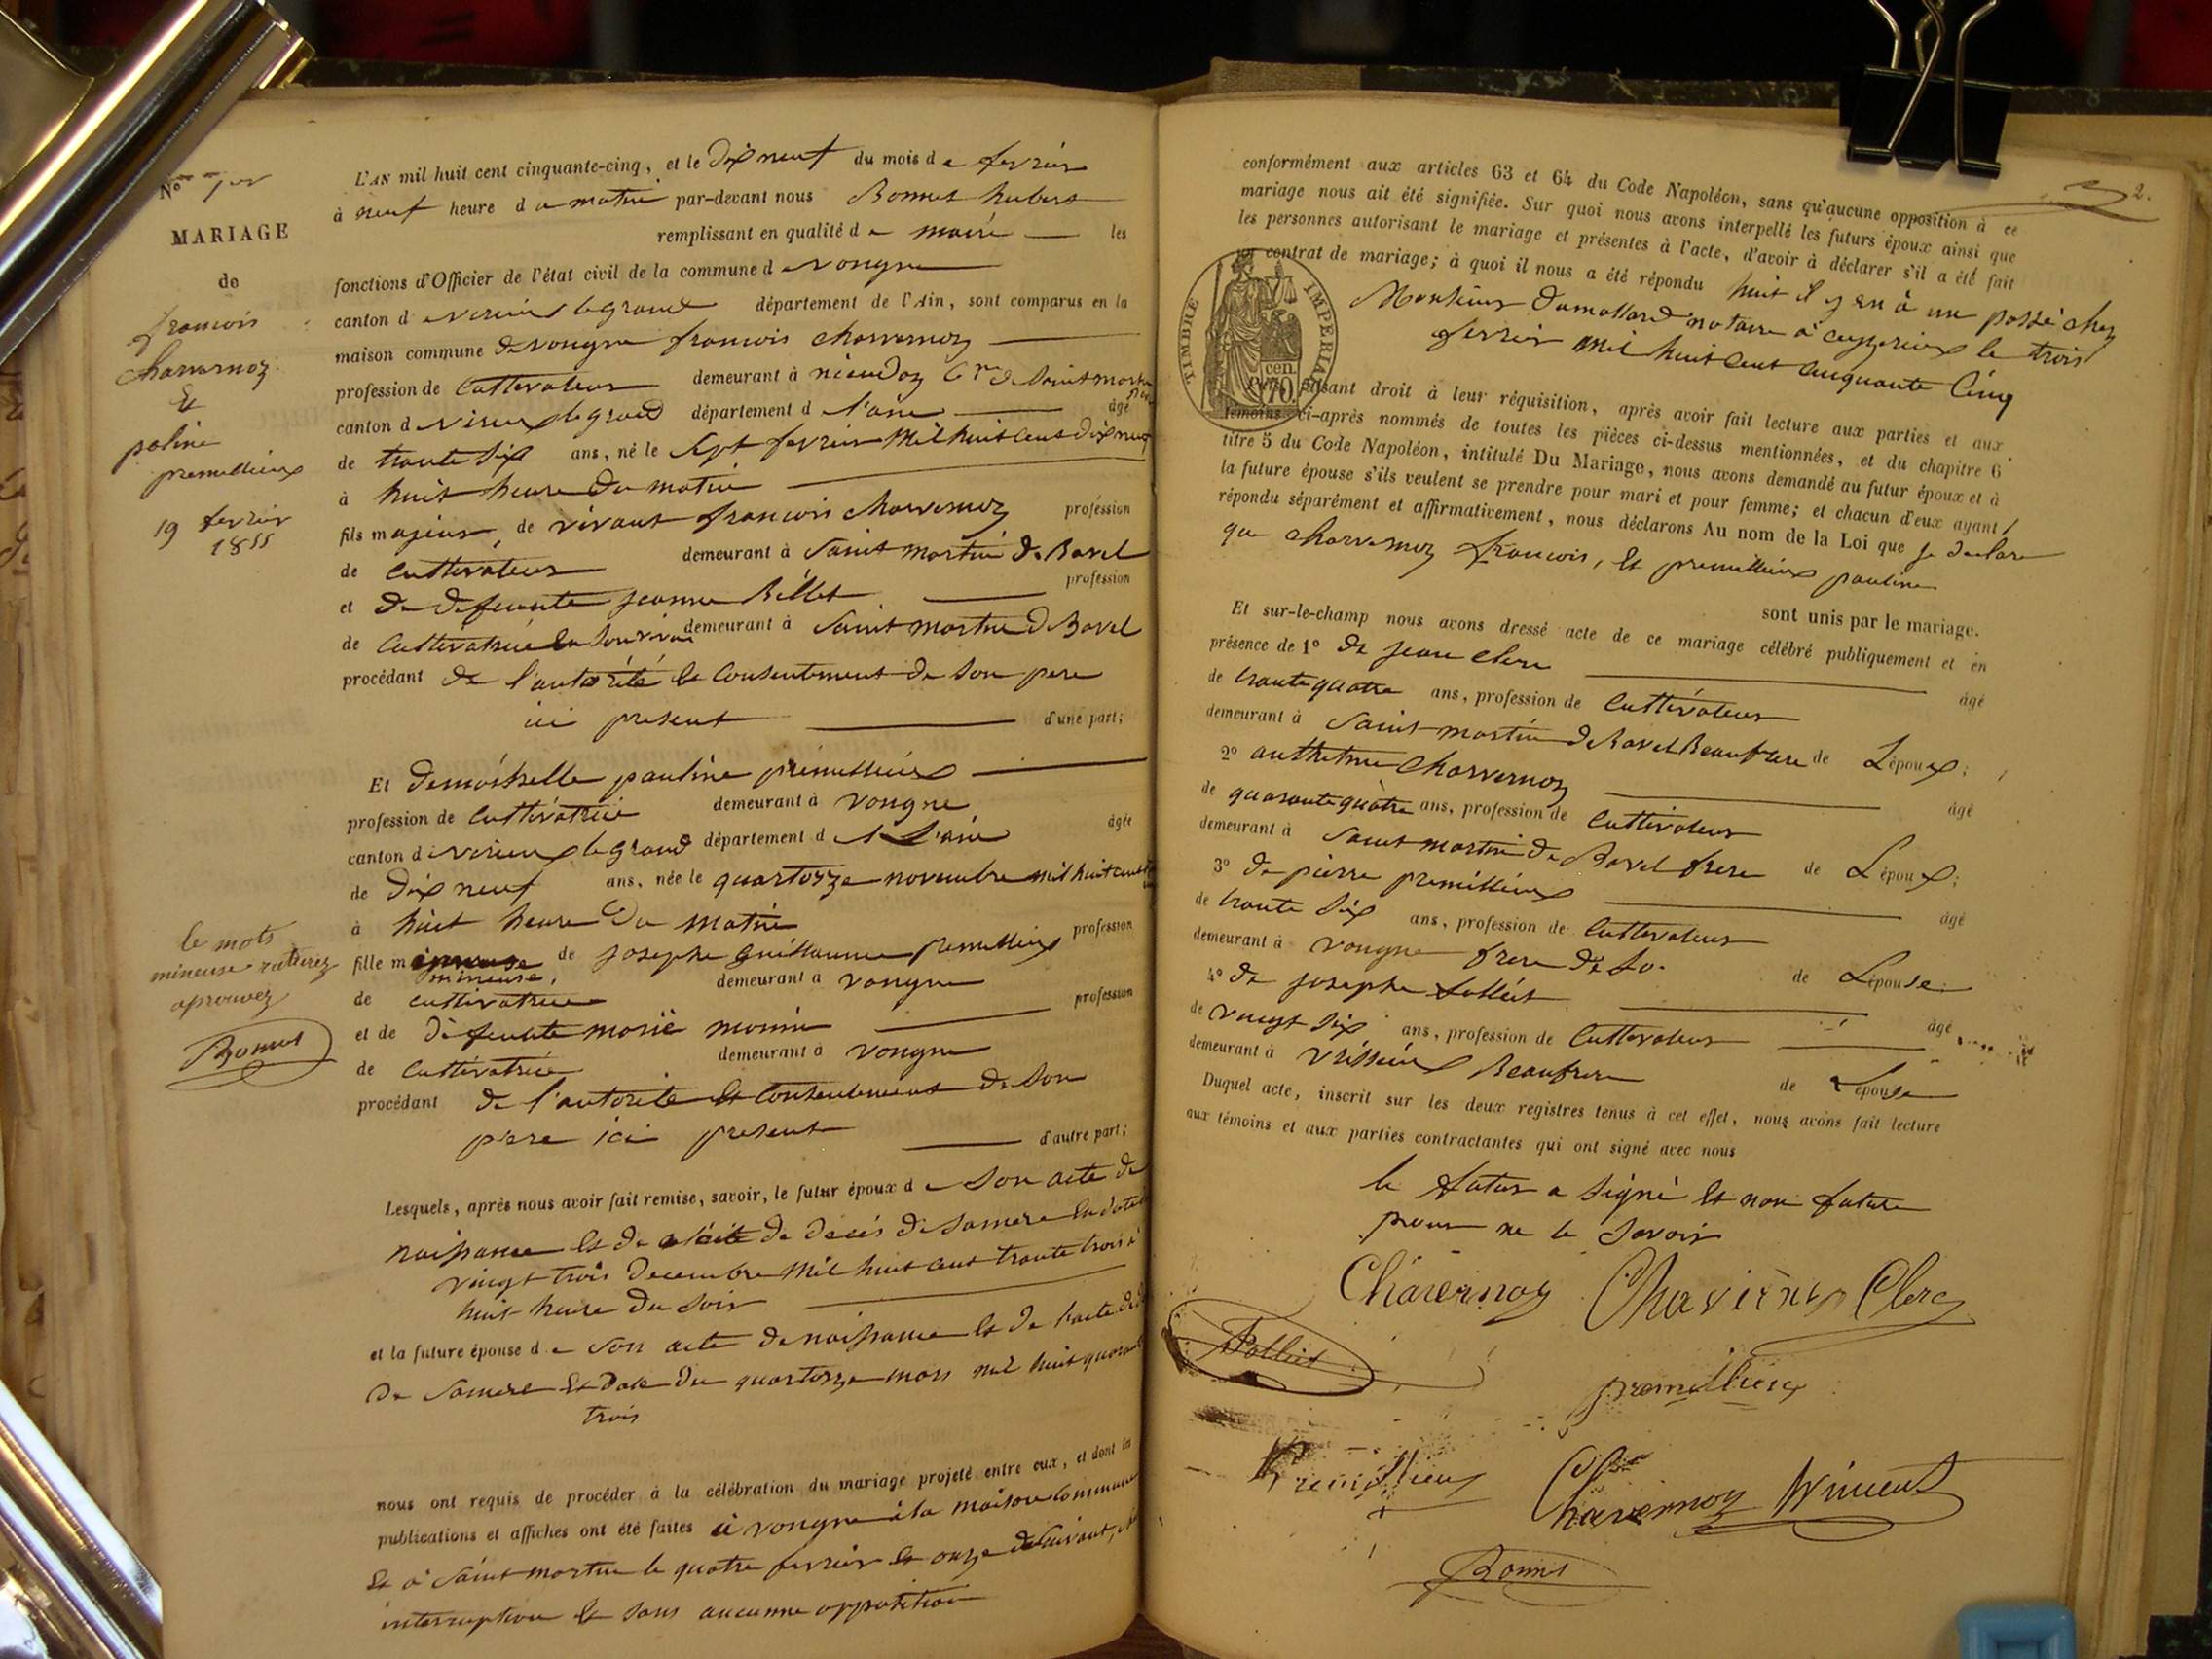 N° 1er
MARIAGE
de
francois
charvernoz
Et
poline
premillieux
19 fevrier
1855
L'AN mil huit cent cinquante-cinq, et le dix neuf du mois de fevrier
à neuf heure du matin par-devant nous Bonnet hubert
remplissant en qualité de maire les
fonctions d'Officier de l'état civil de la commune de vongne
canton de virieux le grand département de l'Ain, sont comparus en la
maison commune de vongne francois charvernoz
profession de Cultivateur demeurant à nieudoz Cne de Saint martin
canton de virieux le grand département de l'ain âgé
de trante six ans, né le sept fevrier mil huit cent dix neuf
à huit heure du matin
fils majeur, de vivant francois charvernoz profession
de Cultivateur demeurant à Saint martin de Bavel
et de defeunte jeanne Billet profession
de Cultivatrice demeurant à Saint martin de Bavel
procédant de l'autorité et Consentement de son pere
ici present d'une part;
Et demoiselle pauline premillieux
profession de Cultivatrice demeurant à vongne
canton de virieux le grand département de L'ain âgée
de dix neuf ans, née le quatorze novembre mil huit cent
à huit heure du matin
fille mineuse de josephe guillaume premillieux profession
mineuse,
de cultivatrice demeurant à vongne
et de défeunte marie monin profession
de Cultivatrice demeurant à vongne
procédant de l'autorité et Consentement de son
pere ici present d'autre part;
le mots
mineuse ratturez
aprouvez
Bonnet
Lesquels, après nous avoir fait remise, savoir, le futur époux de son acte de
naissance et de l'acte de décès de sa mere en date
vingt trois decembre mil huit cent trante trois à
huit heure du soir
et la future épouse de son acte de naissance et de l'acte de
de sa mere et date du quatorze mars mil huit quarante
trois
nous ont requis de procéder à la célébration du mariage projeté entre eux, et dont les
publications et affiches ont été faites à vongne à la maison Commune
et à Saint martin le quatre fevrier et onze suivant,
interruption et sans aucunne opposition
2.
conformément aux articles 63 et 64 du Code Napoléon, sans qu'aucune opposition à ce
mariage nous ait été signifiée. Sur quoi nous avons interpellé les futurs époux ainsi que
les personnes autorisant le mariage et présentes à l'acte, d'avoir à déclarer s'il a été fait
un contrat de mariage; à quoi il nous a été répondu huit il y en à un passé chez
Monsieur dumollard notaire à ceyzerieux le trois
fevrier mil huit cent cinquante Cinq
TIMBRE IMPERIAL
70 cen.
faisant droit à leur réquisition, après avoir fait lecture aux parties et aux
témoins ci-après nommés de toutes les pièces ci-dessus mentionnées, et du chapitre 6
titre 5 du Code Napoléon, intitulé Du Mariage, nous avons demandé au futur époux et à
la future épouse s'ils veulent se prendre pour mari et pour femme; et chacun d'eux ayant
répondu séparément et affirmativement, nous déclarons Au nom de la Loi que je declare
que charvernoz francois, et premillieux pauline
sont unis par le mariage.
Et sur-le-champ nous avons dressé acte de ce mariage célébré publiquement et en
présence de 1° de jean clerc âgé
de trante quatre ans, profession de Cultivateur
demeurant à Saint martin de Bavel Beaufrere de L'époux;
2° anthelme charvernoz âgé
de quarante quatre ans, profession de Cultivateur
demeurant à Saint martin de Bavel frere de L'époux;
3° de pierre premillieux âgé
de trante six ans, profession de Cultivateur
demeurant à vongne frere de la. de L'épouse
4° de josephe Pollret âgé
de vingt six ans, profession de Cultivateur
demeurant à Beaufrere de L'épouse
Duquel acte, inscrit sur les deux registres tenus à cet effet, nous avons fait lecture
aux témoins et aux parties contractantes qui ont signé avec nous
le futur a signé et non future
pour ne le savoir
Charvernoz Charvernoz Clerc
premillieux
Premillieux Charvernoz Vincent
Bonnet